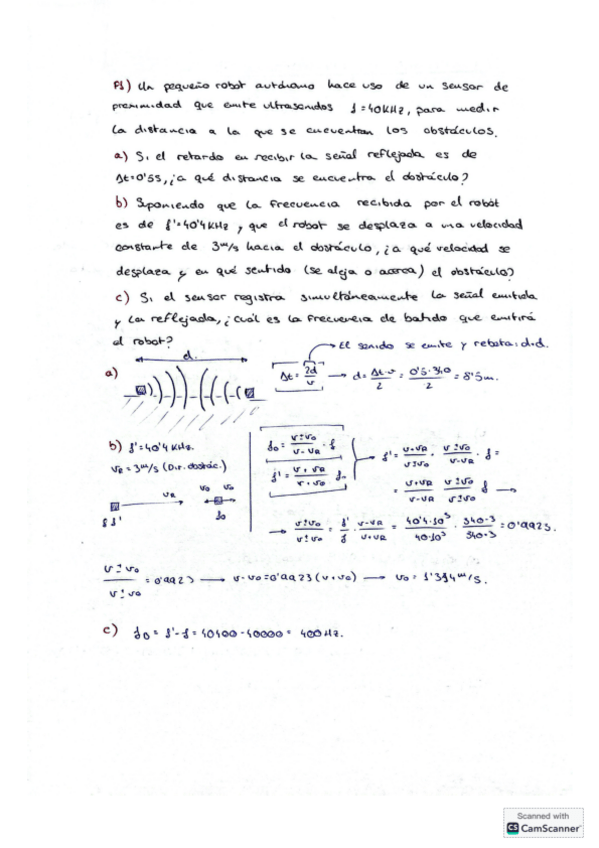 P1) Un pequeño robot autónomo hace uso de un sensor de
proximidad que emite ultrasonidos f=40KHz, para medir
la distancia a la que se encuentran los obstáculos.
a) Si el retardo en recibir la señal reflejada es de
Δt=0'5s, ¿a qué distancia se encuentra el obstáculo?
b) Suponiendo que la frecuencia recibida por el robot
es de f'=40'4KHz, y que el robot se desplaza a una velocidad
constante de 3m/s hacia el obstáculo, ¿a qué velocidad se
desplaza y en qué sentido (se aleja o acerca) el obstáculo?
c) Si el sensor registra simultáneamente la señal emitida
y la reflejada, ¿cuál es la frecuencia de batido que emitirá
el robot?
El sonido se emite y rebota: d+d.
d.
a) Δt = 2d/v → d = Δt·v/2 = 0'5·340/2 = 85m.
b) f'=40'4 KHz.
vR = 3m/s (Dir. obstác.)
vR vo vo
f f' fo
fo = v±vo/v-vR · f
f' = v+vR/v±vo · fo
f' = v+vR/v±vo · v±vo/v-vR · f =
= v+vR/v-vR · v±vo/v±vo f →
→ v±vo/v±vo = f'/f · v-vR/v+vR = 40'4·10³/40·10³ · 340-3/340+3 = 0'9923.
v±vo/v±vo = 0'9923 → v-vo=0'9923(v+vo) → vo = 1'314m/s.
c) fb = f'-f = 40400-40000 = 400Hz.
Scanned with
CS CamScanner